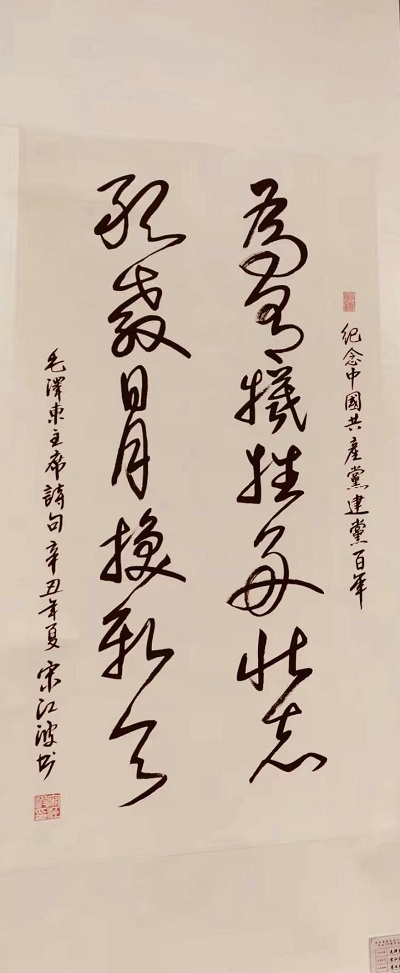 紀念中國共產黨建黨百年
為有犧牲多壯志
敢教日月換新天
毛澤東主席詩句辛丑年夏宋江波书